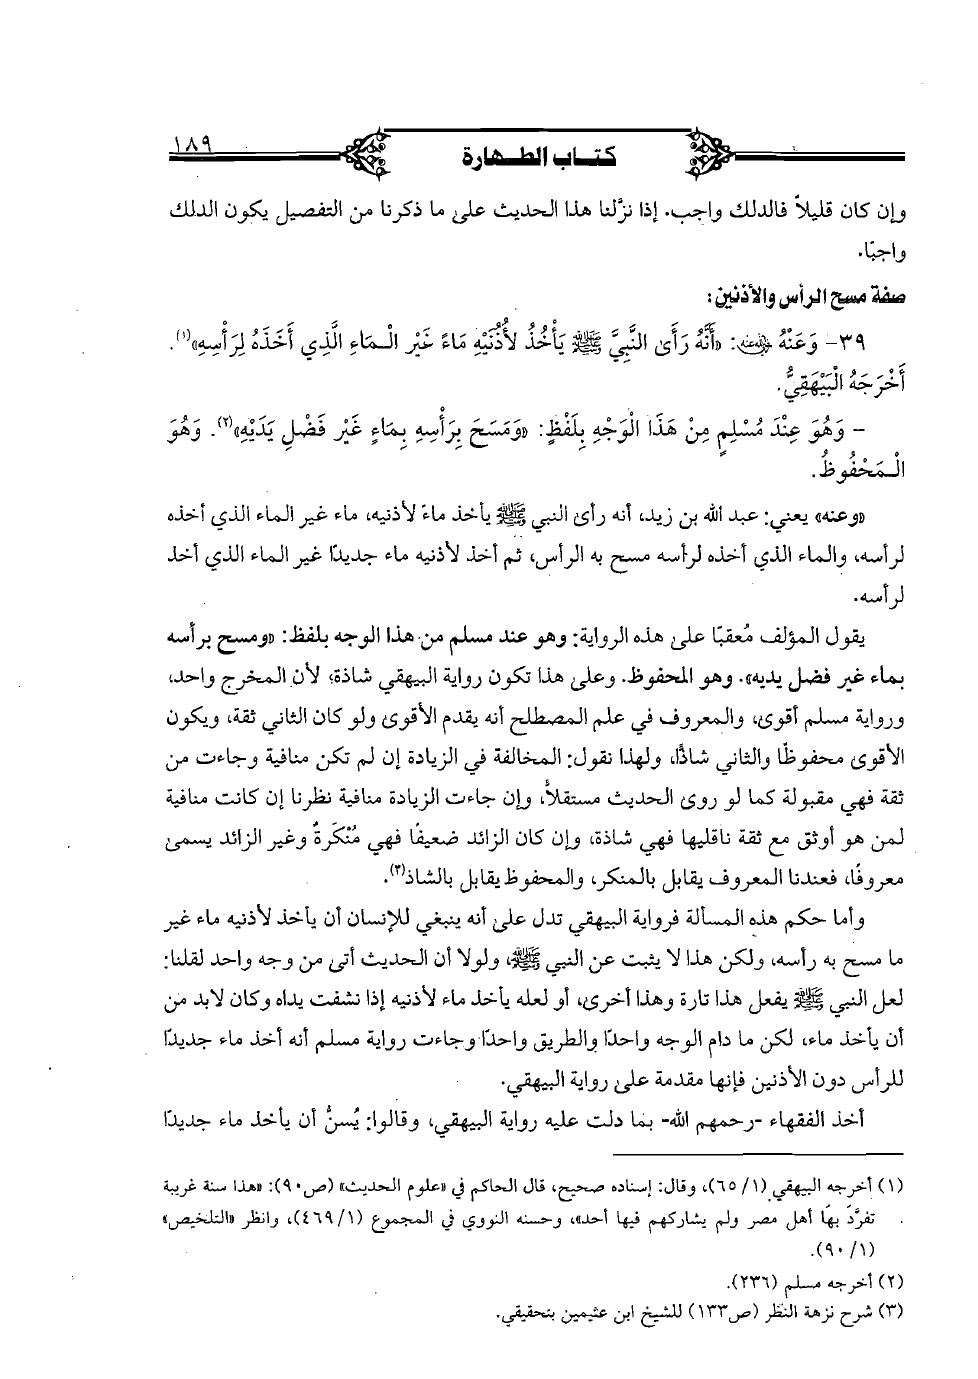 ١٨٩
كتاب الطهارة
وإن كان قليلاً فالدلك واجب. إذا نزَّلنا هذا الحديث على ما ذكرنا من التفصيل يكون الدلك
واجبًا.
صفة مسح الرأس والأذنين:
٣٩- وَعَنْهُ رضي الله عنه: «أَنَّهُ رَأَى النَّبِيَّ ﷺ يَأْخُذُ لأُذُنَيْهِ مَاءً غَيْرَ الْـمَاءِ الَّذِي أَخَذَهُ لِرَأْسِهِ»(١).
أَخْرَجَهُ الْبَيْهَقِيُّ.
- وَهُوَ عِنْدَ مُسْلِمٍ مِنْ هَذَا الْوَجْهِ بِلَفْظِ: «وَمَسَحَ بِرَأْسِهِ بِمَاءٍ غَيْرَ فَضْلِ يَدَيْهِ»(٢). وَهُوَ
الْـمَحْفُوظُ.
«وعنه» يعني: عبد الله بن زيد، أنه رأى النبي ﷺ يأخذ ماءً لأذنيه، ماء غير الماء الذي أخذه
لرأسه، والماء الذي أخذه لرأسه مسح به الرأس، ثم أخذ لأذنيه ماء جديدًا غير الماء الذي أخذ
لرأسه.
يقول المؤلف مُعقبًا على هذه الرواية: وهو عند مسلم من هذا الوجه بلفظ: «ومسح برأسه
بماء غير فضل يديه». وهو المحفوظ. وعلى هذا تكون رواية البيهقي شاذة؛ لأن المخرج واحد،
ورواية مسلم أقوى، والمعروف في علم المصطلح أنه يقدم الأقوى ولو كان الثاني ثقة، ويكون
الأقوى محفوظًا والثاني شاذًّا، ولهذا نقول: المخالفة في الزيادة إن لم تكن منافية وجاءت من
ثقة فهي مقبولة كما لو روى الحديث مستقلاً، وإن جاءت الزيادة منافية نظرنا إن كانت منافية
لمن هو أوثق مع ثقة ناقليها فهي شاذة، وإن كان الزائد ضعيفًا فهي مُنْكَرةٌ وغير الزائد يسمى
معروفًا، فعندنا المعروف يقابل بالمنكر، والمحفوظ يقابل بالشاذ(٣).
وأما حكم هذه المسألة فرواية البيهقي تدل على أنه ينبغي للإنسان أن يأخذ لأذنيه ماء غير
ما مسح به رأسه، ولكن هذا لا يثبت عن النبي ﷺ، ولولا أن الحديث أتى من وجه واحد لقلنا:
لعل النبي ﷺ يفعل هذا تارة وهذا أخرى، أو لعله يأخذ ماء لأذنيه إذا نشفت يداه وكان لابد من
أن يأخذ ماء، لكن ما دام الوجه واحدًا والطريق واحدًا وجاءت رواية مسلم أنه أخذ ماء جديدًا
للرأس دون الأذنين فإنها مقدمة على رواية البيهقي.
أخذ الفقهاء -رحمهم الله- بما دلت عليه رواية البيهقي، وقالوا: يُسنُّ أن يأخذ ماء جديدًا
(١) أخرجه البيهقي (١/ ٦٥)، وقال: إسناده صحيح، قال الحاكم في «علوم الحديث» (ص٩٠): «هذا سنة غريبة
تفرَّدَ بها أهل مصر ولم يشاركهم فيها أحد»، وحسنه النووي في المجموع (١/ ٤٦٩)، وانظر «التلخيص»
(١/ ٩٠).
(٢) أخرجه مسلم (٢٣٦).
(٣) شرح نزهة النظر (ص١٣٣) للشيخ ابن عثيمين بتحقيقي.